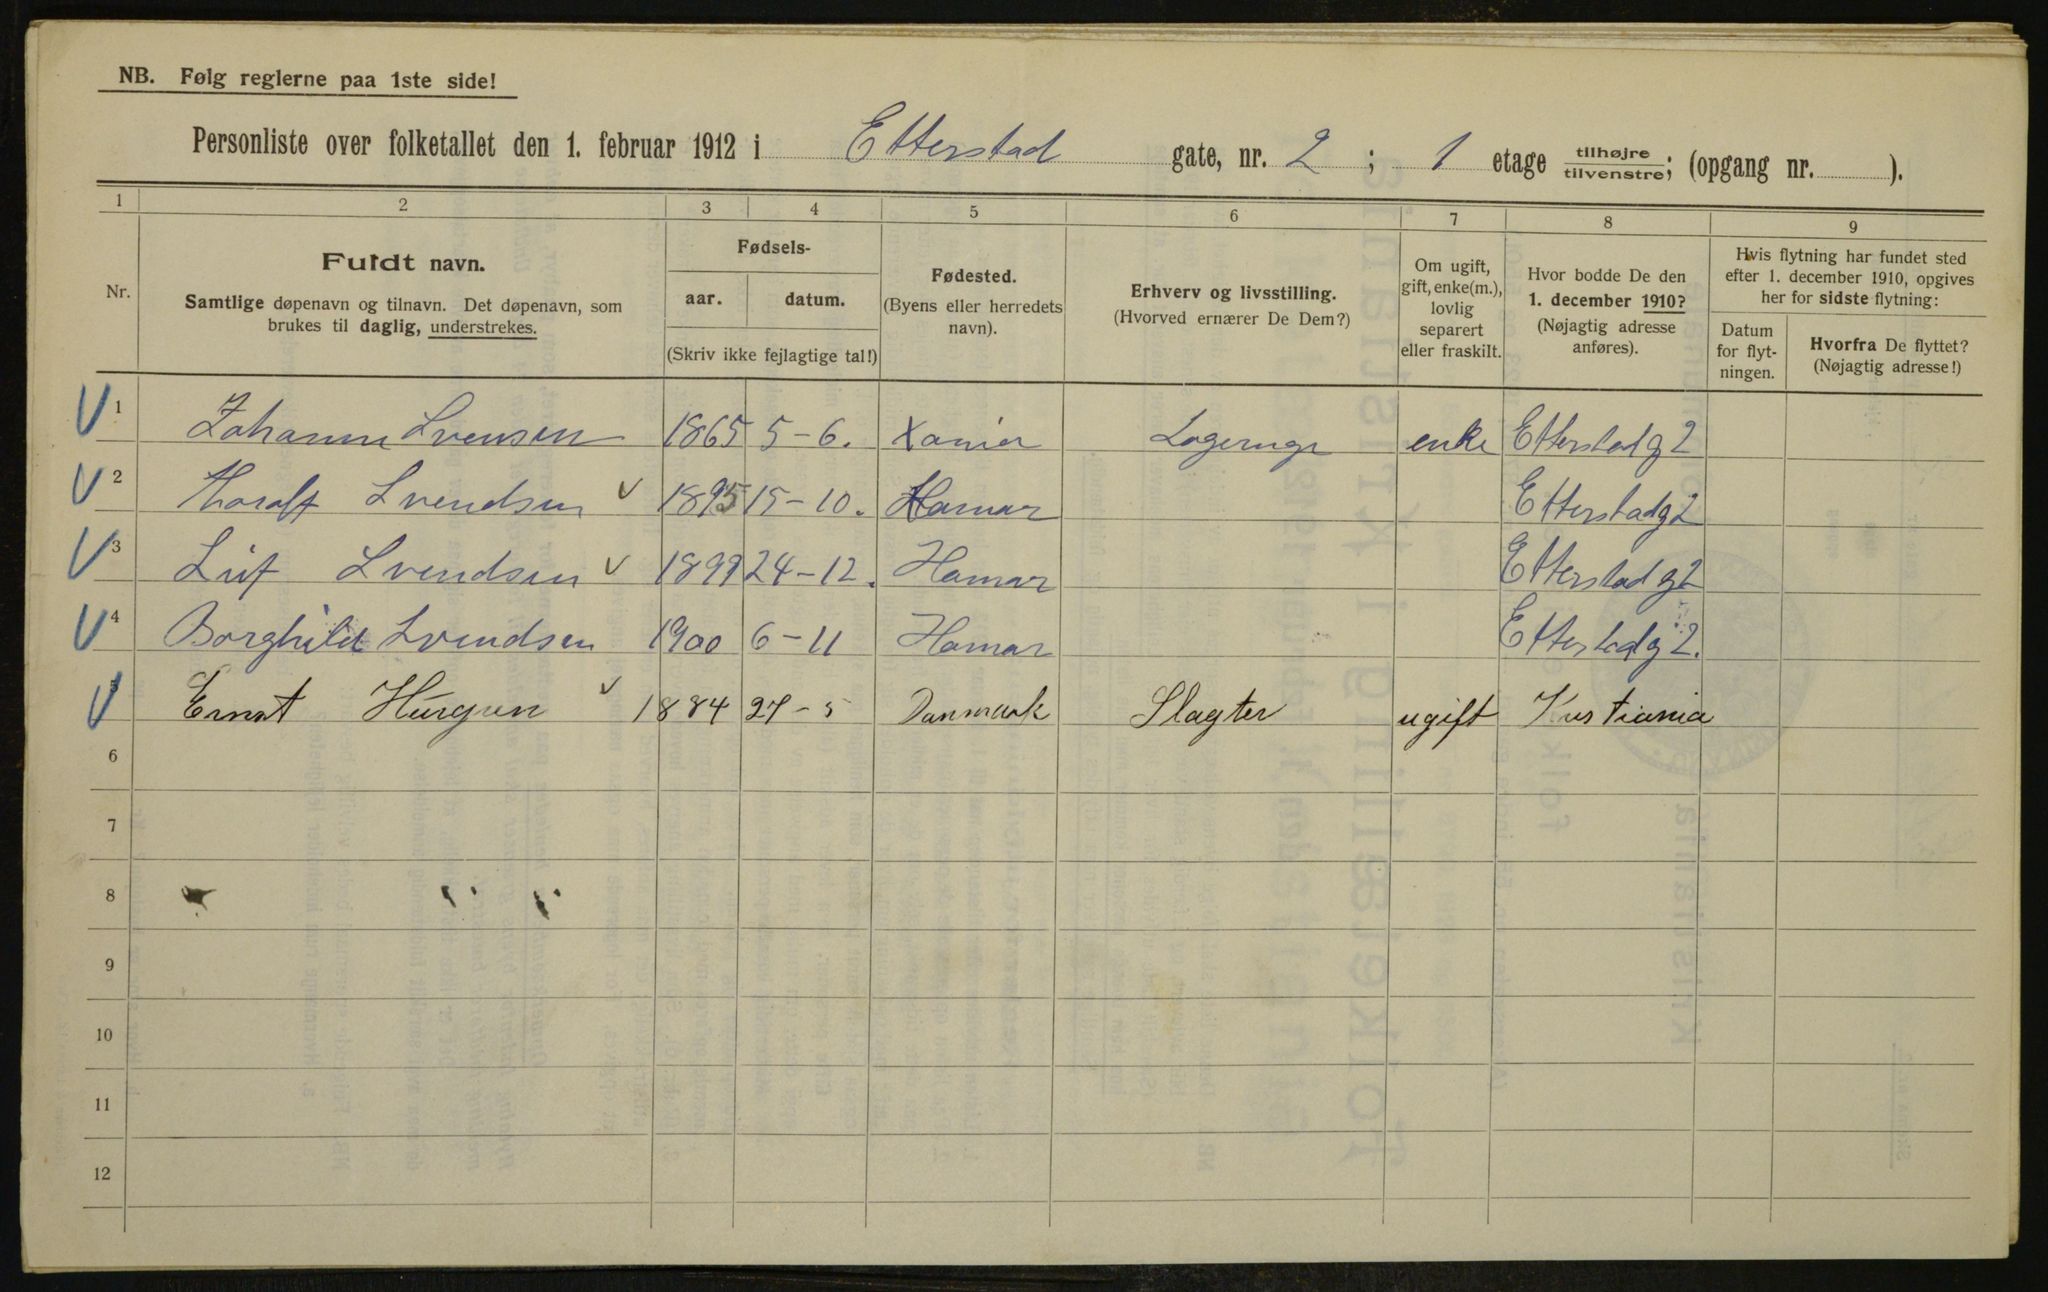 NB. Følg reglerne paa 1ste side!
Personliste over folketallet den 1. februar 1912 i Etterstad gate, nr. 2 ; 1 etage tilhøjre/tilvenstre; (opgang nr. ).
1 2 3 4 5 6 7 8 9
Nr.
Fuldt navn.
Samtlige døpenavn og tilnavn. Det døpenavn, som
brukes til daglig, understrekes.
Fødsels-
aar. datum.
(Skriv ikke fejlagtige tal!)
Fødested.
(Byens eller herredets
navn).
Erhverv og livsstilling.
(Hvorved ernærer De Dem?)
Om ugift,
gift, enke(m.),
lovlig
separert
eller fraskilt.
Hvor bodde De den
1. december 1910?
(Nøjagtig adresse
anføres).
Hvis flytning har fundet sted
efter 1. december 1910, opgives
her for sidste flytning:
Datum
for flyt-
ningen.
Hvorfra De flyttet?
(Nøjagtig adresse!)
1 Johanne Svensen 1865 5-6. Xania enke Etterstadg 2
2 Thoralf Svendsen 1895 15-10. Hamar Etterstadg 2
3 Leif Svendsen 1899 24-12. Hamar Etterstadg 2
4 Borghild Svendsen 1900 6-11 Hamar Etterstadg 2.
5 Ernst 1884 27-5 Danmark Slagter ugift Kristiania
6
7
8
9
10
11
12